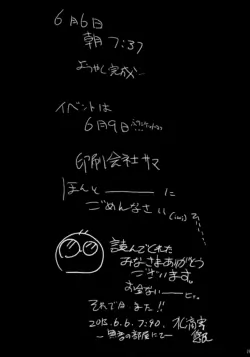 6月6日
朝 7:37
ようやく完成…
イベントは
6月9日…!!
印刷会社サマ
ほんと――――に
ごめんなさい
読んでくれた
みなさまありがとう
ございます。
それではまた!!
2015.6.6. 7:40.
の部屋にて〜